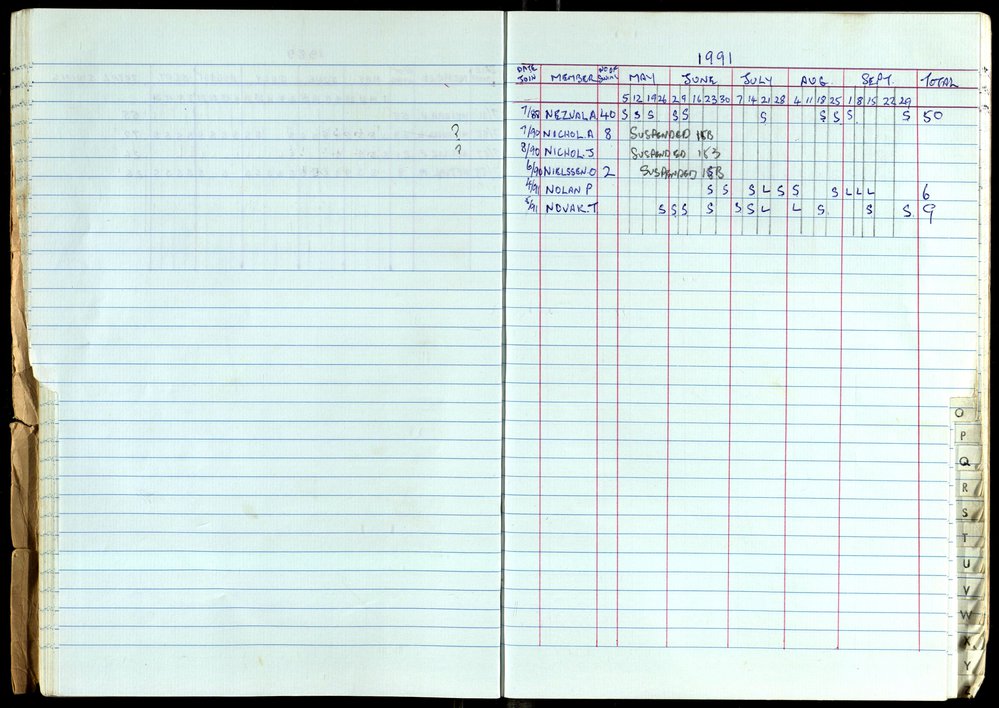 1991
DATE JOIN MEMBER NO OF SWIMS MAY JUNE JULY AUG SEPT. TOTAL
5 12 19 26 2 9 16 23 30 7 14 21 28 4 11 18 25 1 8 15 22 29
7/88 NEZVAL.A 40 S S S S S S S S S S 50
? 7/90 NICHOL.A 8 SUSPENDED
? 8/90 NICHOL.J SUSPENDED
6/90 NIELSSEN.O 2 SUSPENDED
4/91 NOLAN P S S S L S S S L L L 6
5/91 NOVAK.T S S S S S S L L S S S 9
O
P
Q
R
S
T
U
V
W
X
Y